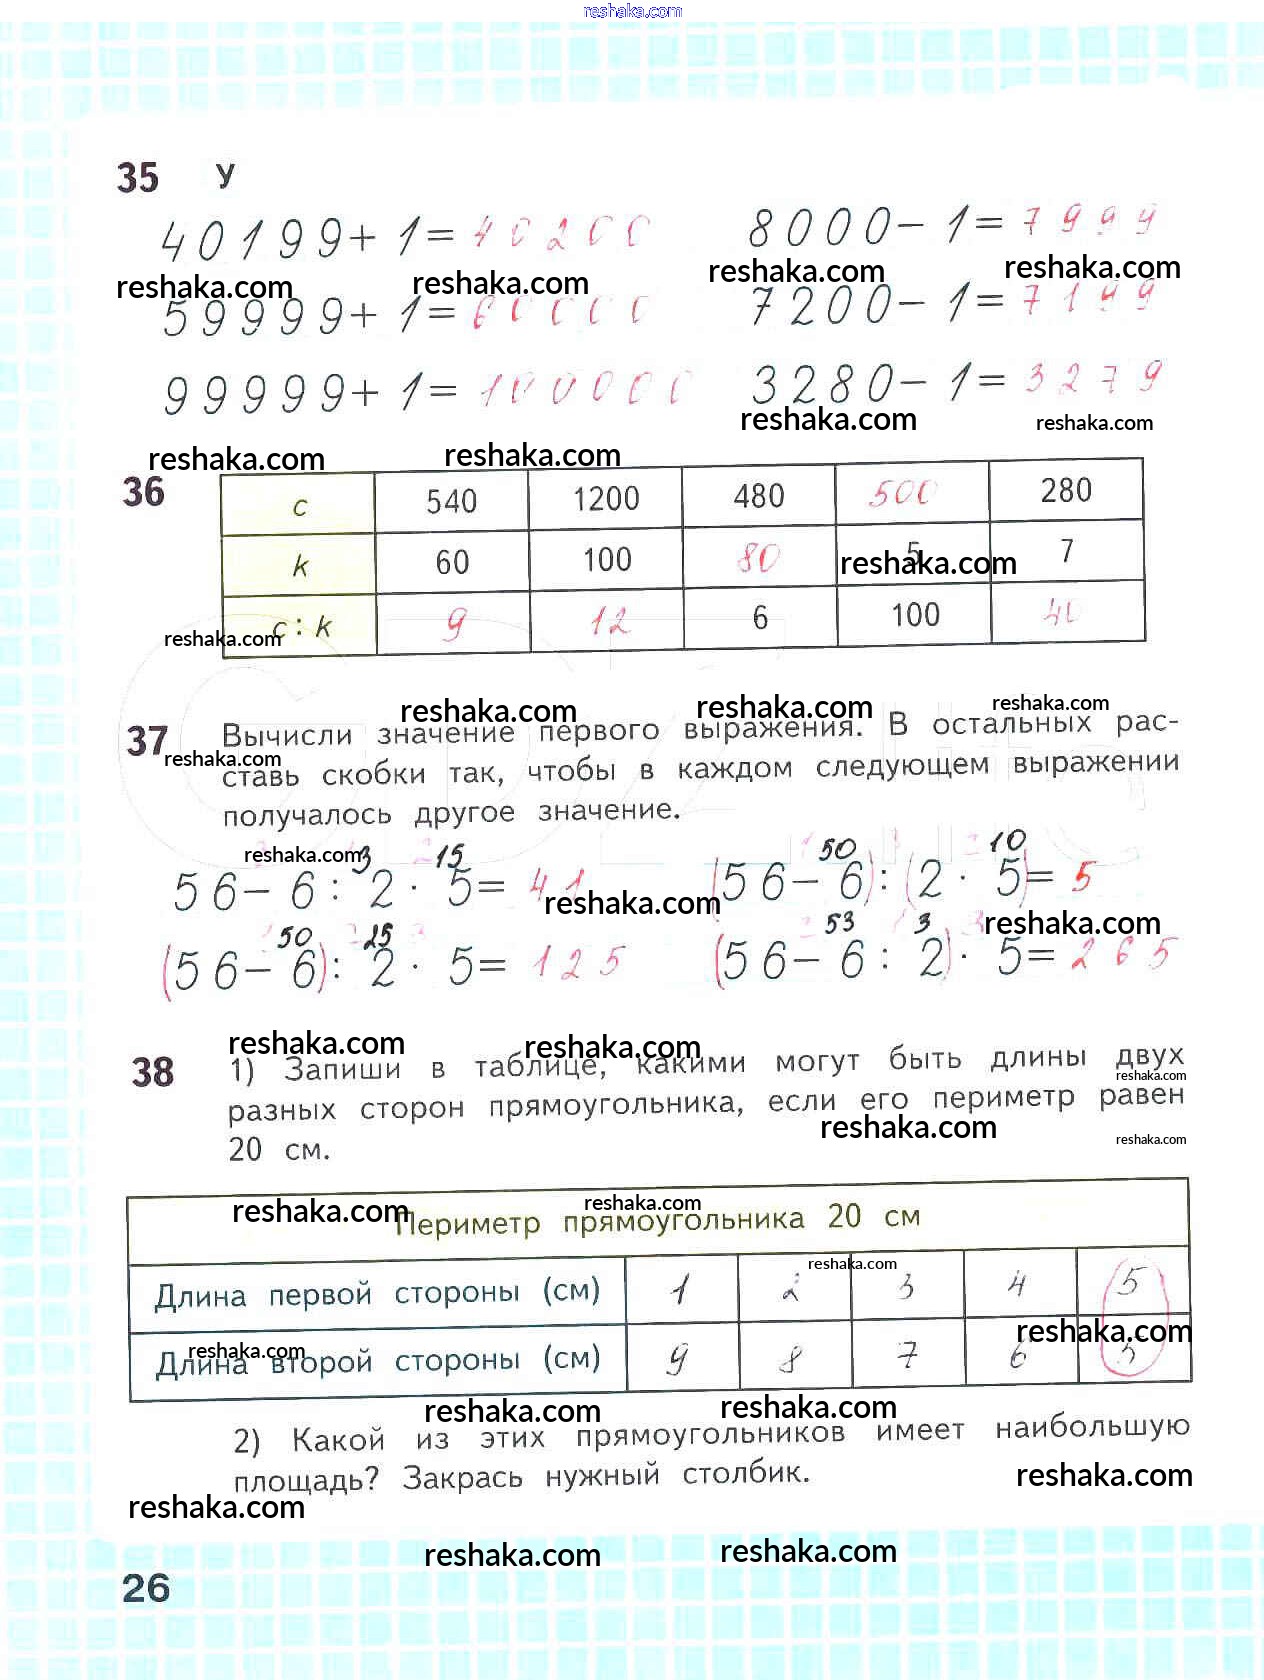 reshaka.com
35 У
40199+1=40200 8000-1=7999
reshaka.com reshaka.com reshaka.com reshaka.com
59999+1=60000 7200-1=7199
99999+1=100000 3280-1=3279
reshaka.com reshaka.com
reshaka.com reshaka.com
36
c 540 1200 480 500 280
k 60 100 80 5 7
reshaka.com
c:k 9 12 6 100 40
reshaka.com
reshaka.com reshaka.com reshaka.com
37 Вычисли значение первого выражения. В остальных рас-
reshaka.com
ставь скобки так, чтобы в каждом следующем выражении
получалось другое значение.
reshaka.com 3 15 50 10
56-6:2·5=41 (56-6):(2·5)=5
reshaka.com reshaka.com
50 25 53 3
(56-6):2·5=125 (56-6:2)·5=265
reshaka.com reshaka.com
38 1) Запиши в таблице, какими могут быть длины двух
reshaka.com
разных сторон прямоугольника, если его периметр равен
reshaka.com reshaka.com
20 см.
reshaka.com reshaka.com
Периметр прямоугольника 20 см
reshaka.com
Длина первой стороны (см) 1 2 3 4 5
reshaka.com reshaka.com
Длина второй стороны (см) 9 8 7 6 5
reshaka.com reshaka.com
2) Какой из этих прямоугольников имеет наибольшую
площадь? Закрась нужный столбик.
reshaka.com
reshaka.com
reshaka.com reshaka.com
26